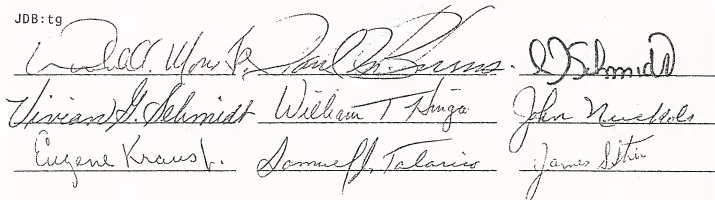 JDB:tg
Paul Burns. Schmidt
Vivian G. Schmidt William T Hinga John Nuckols
Eugene Kraus Jr. Samuel J. Talarico James